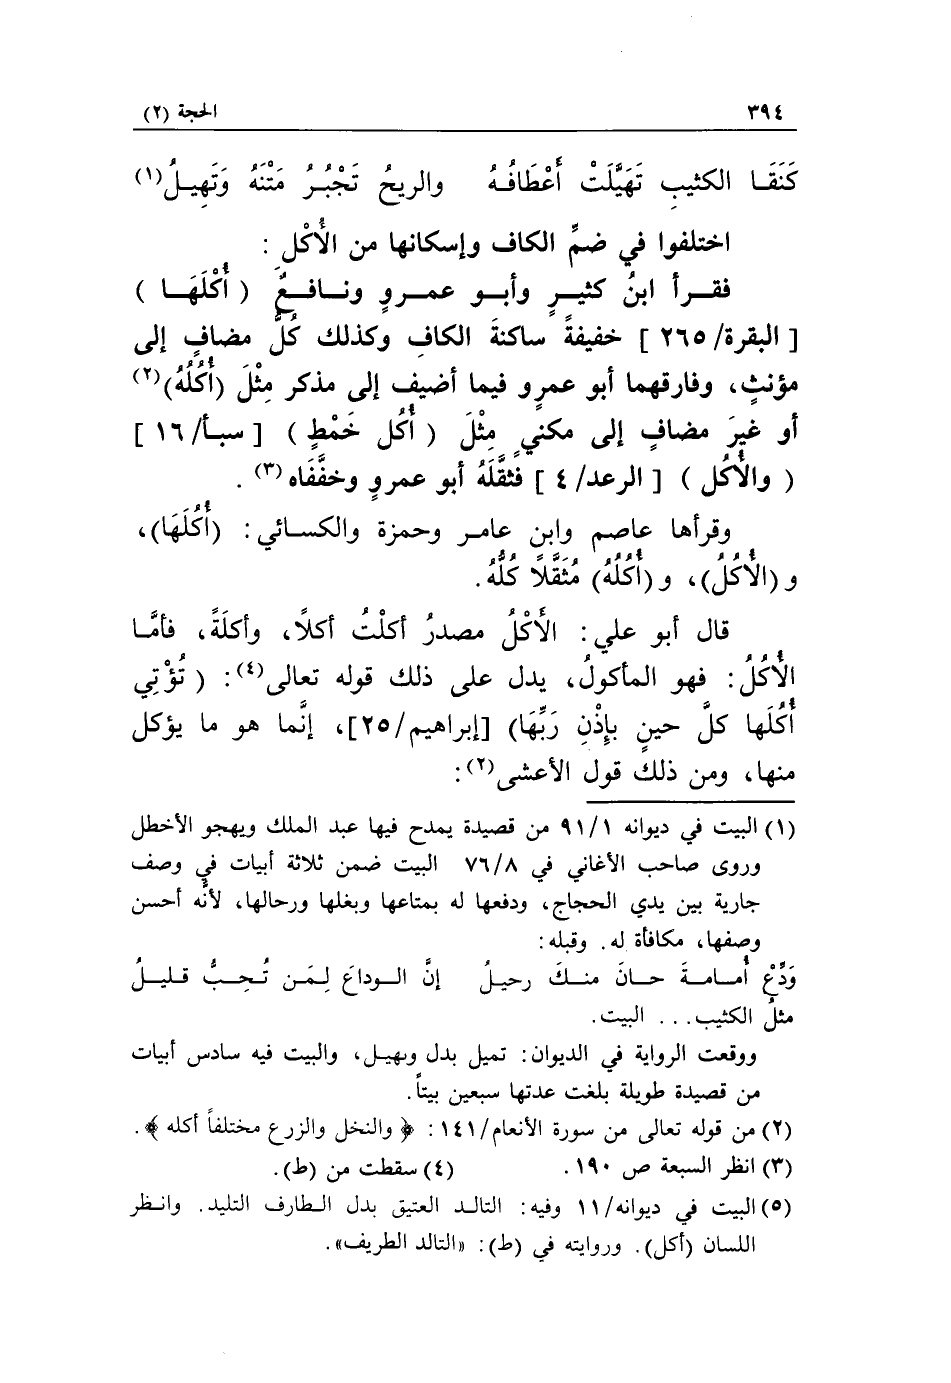 ٣٩٤ الحجة (٢)
كَنَقَـا الكثيبِ تَهَيَّلَتْ أَعْطَافُـهُ والريحُ تَجْبُـرُ مَتْنَهُ وَتَهِيـلُ(١)
اختلفوا في ضمِّ الكاف وإسكانها من الأُكْلِ :
فقـرأ ابنُ كثيـرٍ وأبـو عمـروٍ ونـافـعٌ ( أُكْلَهَـا )
[ البقرة/ ٢٦٥ ] خفيفةً ساكنةَ الكافِ وكذلك كُلَّ مضافٍ إلى
مؤنثٍ، وفارقهما أبو عمرو فيما أضيف إلى مذكر مِثْلَ (أُكُلُهُ)(٢)
أو غيرَ مضافٍ إلى مكنيٍ مِثْلَ ( أُكُلٍ خَمْطٍ ) [ سبأ/ ١٦ ]
( والأُكُل ) [ الرعد/ ٤ ] فثقَّلَهُ أبو عمروٍ وخفَّفَاه (٣) .
وقرأها عاصم وابن عامـر وحمزة والكسـائي: (أُكُلَهَا)،
و (الأُكُلُ)، و (أُكُلُهُ) مُثَقَّلاً كلُّهُ.
قال أبو علي: الأَكْلُ مصدرُ أكلْتُ أكلاً، وأكلَةً، فأمَّـا
الأُكُلُ: فهو المأكولُ، يدل على ذلك قوله تعالى(٤): ( تُؤْتِي
أُكُلَها كلَّ حينٍ بإِذْنِ رَبِّهَا) [إبراهيم/ ٢٥]، إنَّما هو ما يؤكل
منها، ومن ذلك قول الأعشى(٢):
(١) البيت في ديوانه ٩١/١ من قصيدة يمدح فيها عبد الملك ويهجو الأخطل
وروى صاحب الأغاني في ٧٦/٨ البيت ضمن ثلاثة أبيات في وصف
جارية بين يدي الحجاج، ودفعها له بمتاعها وبغلها ورحالها، لأنَّه أحسن
وصفها، مكافأة له. وقبله:
وَدِّعْ أُمـامـةَ حـانَ منـكَ رحيلُ إنَّ الـوداعَ لِمَـن تُحِـبُّ قليـلُ
مثلُ الكثيب... البيت.
ووقعت الرواية في الديوان: تميل بدل وتهيـل، والبيت فيه سادس أبيات
من قصيدة طويلة بلغت عدتها سبعين بيتاً.
(٢) من قوله تعالى من سورة الأنعام/ ١٤١: ﴿ والنخل والزرع مختلفاً أكله ﴾.
(٣) انظر السبعة ص ١٩٠. (٤) سقطت من (ط).
(٥) البيت في ديوانه/ ١١ وفيه: التالـد العتيق بدل الـطارف التليد. وانـظر
اللسان (أكل). وروايته في (ط): «التالد الطريف».